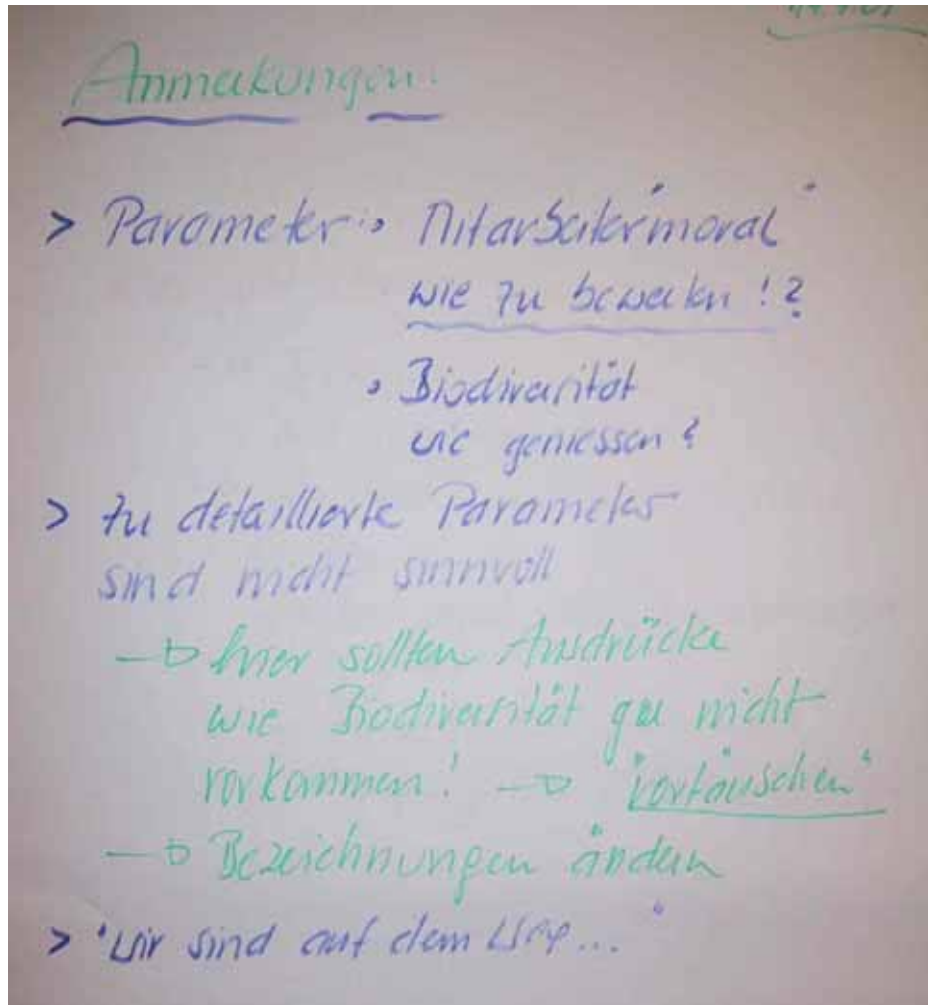 Anmerkungen:
> Parameter: • Mitarbeiter"moral"
wie zu bewerten !?
• Biodiversität
wie gemessen?
> Zu detaillierte Parameter
sind nicht sinnvoll
→ hier sollten Ausdrücke
wie Biodiversität gar nicht
vorkommen! → "vortäuschen"
→ Bezeichnungen ändern
> "Wir sind auf dem Weg..."